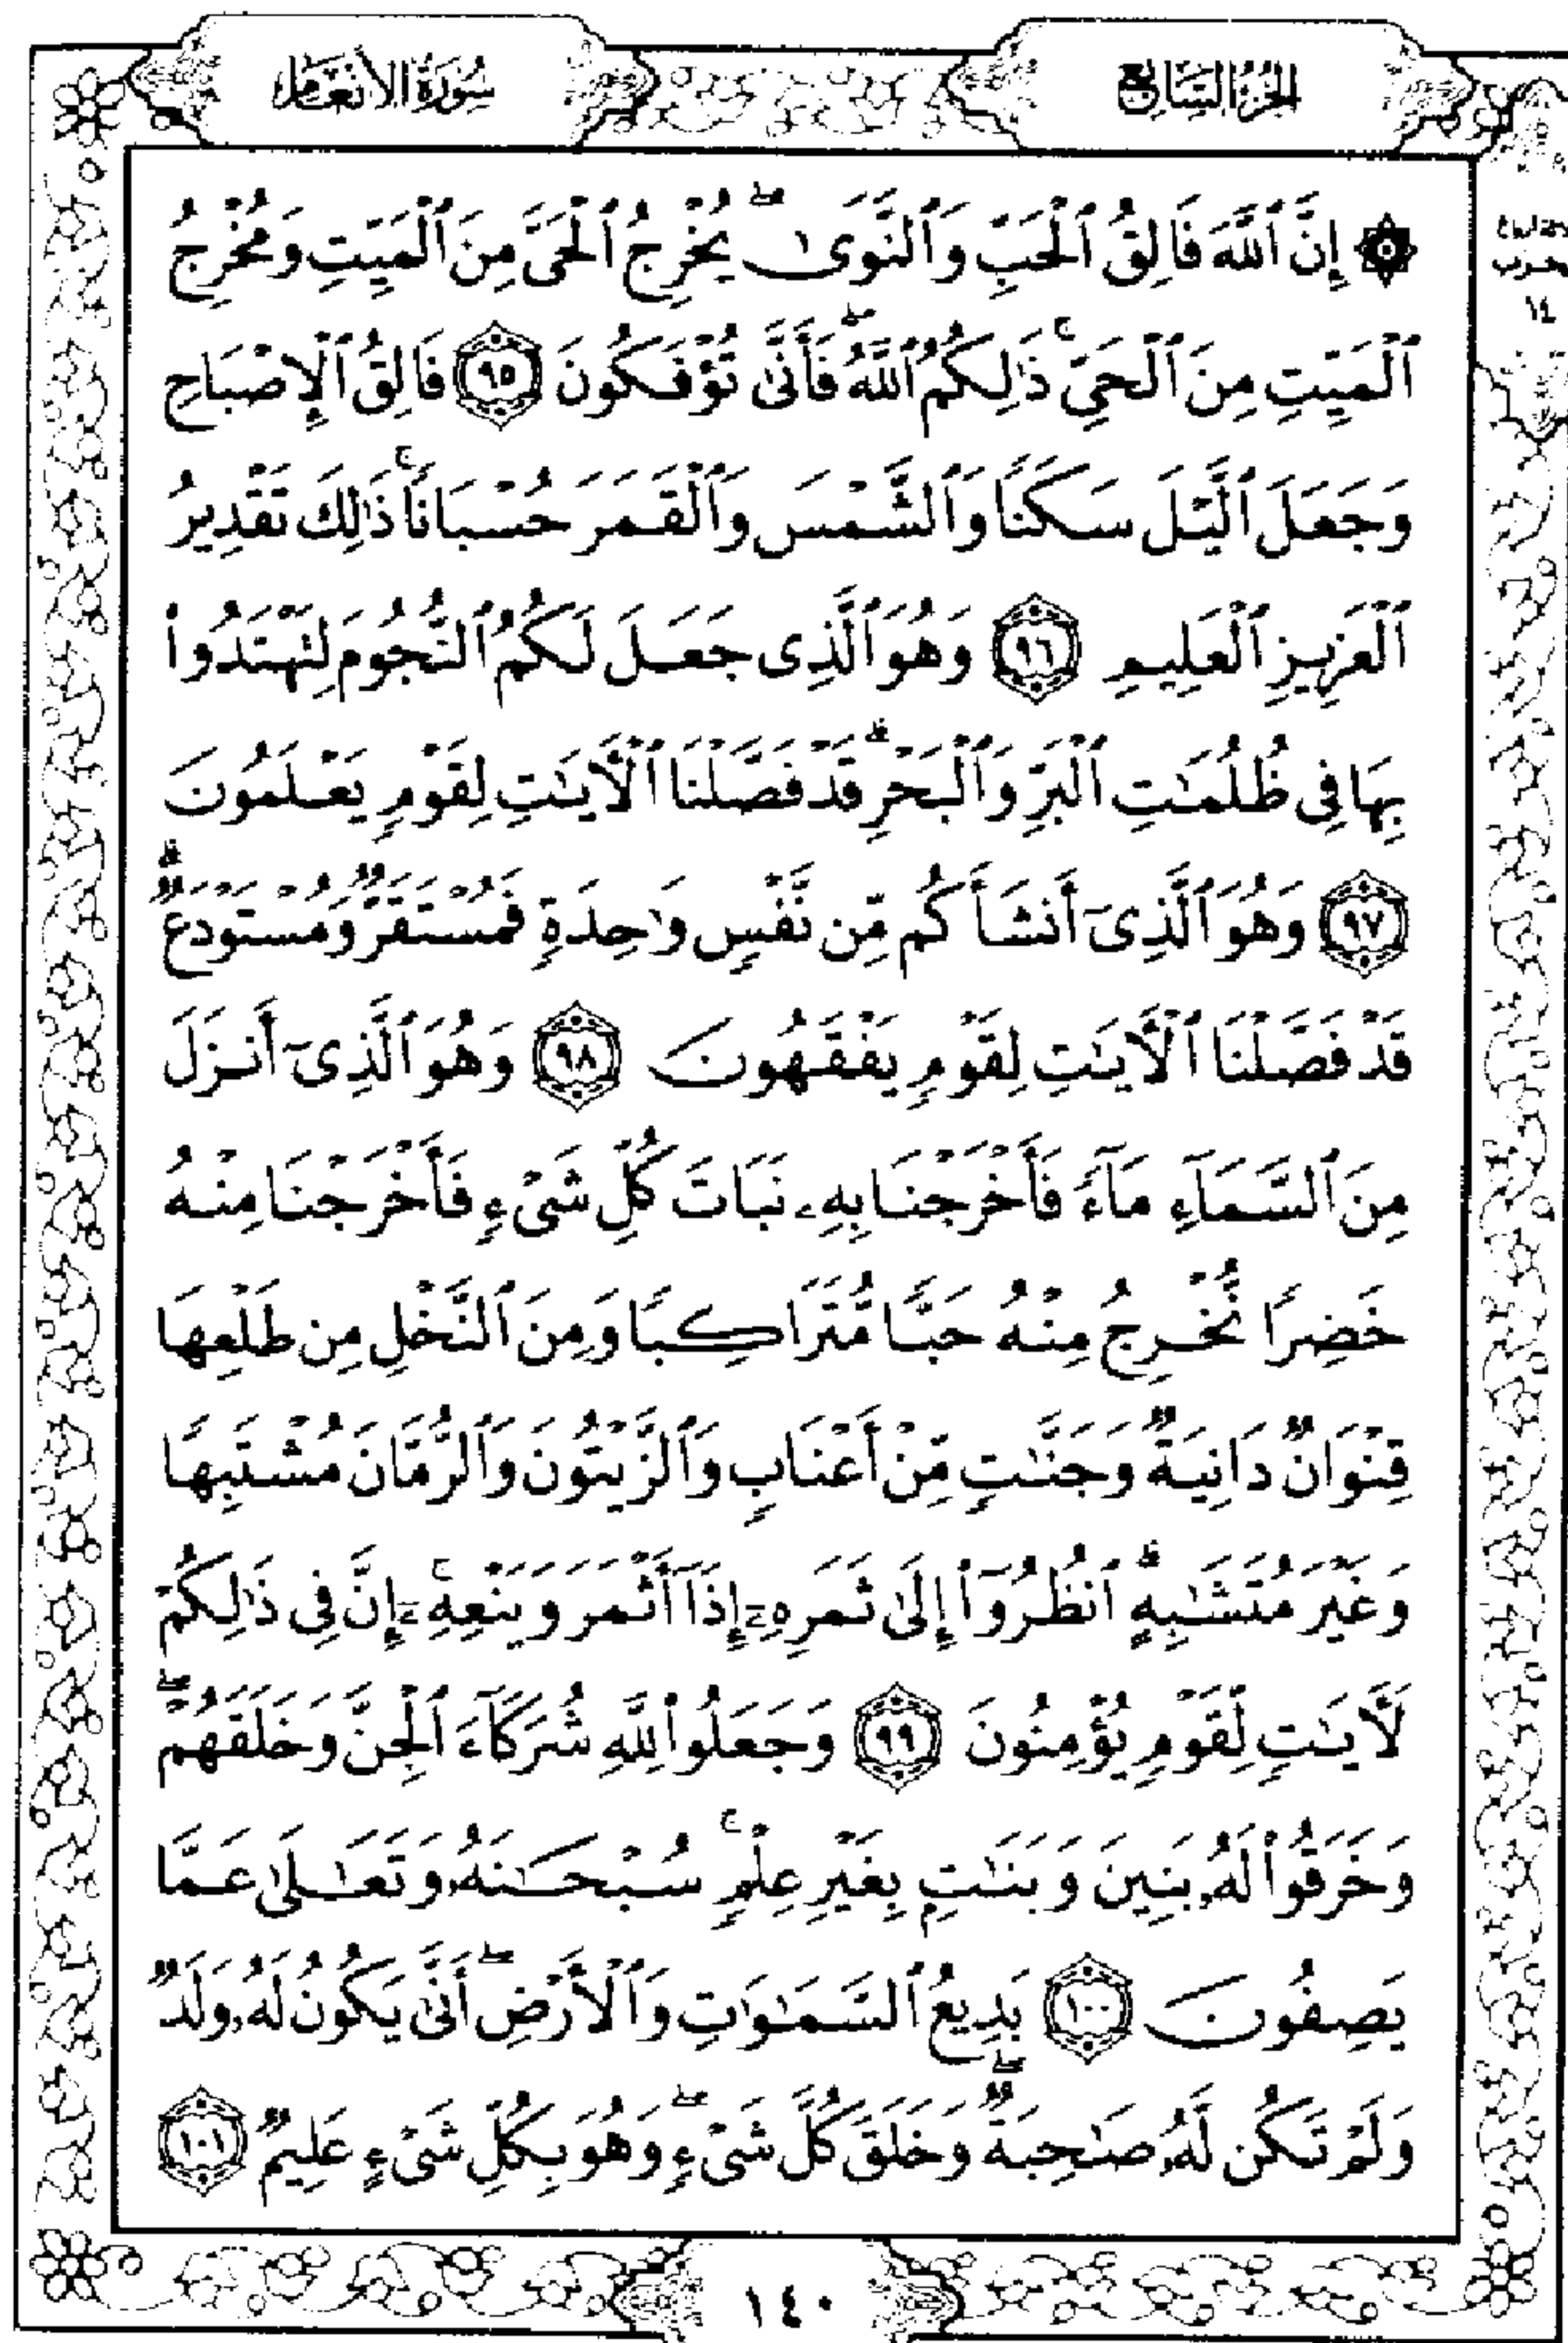 سُورَةُ الأَنْعَامِ
الجُزْءُ السَّابِعُ
۞ إِنَّ ٱللَّهَ فَالِقُ ٱلْحَبِّ وَٱلنَّوَىٰ ۖ يُخْرِجُ ٱلْحَىَّ مِنَ ٱلْمَيِّتِ وَمُخْرِجُ
ٱلْمَيِّتِ مِنَ ٱلْحَىِّ ۚ ذَٰلِكُمُ ٱللَّهُ ۖ فَأَنَّىٰ تُؤْفَكُونَ ٩٥ فَالِقُ ٱلْإِصْبَاحِ
وَجَعَلَ ٱلَّيْلَ سَكَنًا وَٱلشَّمْسَ وَٱلْقَمَرَ حُسْبَانًا ۚ ذَٰلِكَ تَقْدِيرُ
ٱلْعَزِيزِ ٱلْعَلِيمِ ٩٦ وَهُوَ ٱلَّذِى جَعَلَ لَكُمُ ٱلنُّجُومَ لِتَهْتَدُوا۟
بِهَا فِى ظُلُمَٰتِ ٱلْبَرِّ وَٱلْبَحْرِ ۗ قَدْ فَصَّلْنَا ٱلْءَايَٰتِ لِقَوْمٍ يَعْلَمُونَ
٩٧ وَهُوَ ٱلَّذِىٓ أَنشَأَكُم مِّن نَّفْسٍ وَٰحِدَةٍ فَمُسْتَقَرٌّ وَمُسْتَوْدَعٌ ۗ
قَدْ فَصَّلْنَا ٱلْءَايَٰتِ لِقَوْمٍ يَفْقَهُونَ ٩٨ وَهُوَ ٱلَّذِىٓ أَنزَلَ
مِنَ ٱلسَّمَآءِ مَآءً فَأَخْرَجْنَا بِهِۦ نَبَاتَ كُلِّ شَىْءٍ فَأَخْرَجْنَا مِنْهُ
خَضِرًا نُّخْرِجُ مِنْهُ حَبًّا مُّتَرَاكِبًا وَمِنَ ٱلنَّخْلِ مِن طَلْعِهَا
قِنْوَانٌ دَانِيَةٌ وَجَنَّٰتٍ مِّنْ أَعْنَابٍ وَٱلزَّيْتُونَ وَٱلرُّمَّانَ مُشْتَبِهًا
وَغَيْرَ مُتَشَٰبِهٍ ۗ ٱنظُرُوٓا۟ إِلَىٰ ثَمَرِهِۦٓ إِذَآ أَثْمَرَ وَيَنْعِهِۦٓ ۚ إِنَّ فِى ذَٰلِكُمْ
لَءَايَٰتٍ لِّقَوْمٍ يُؤْمِنُونَ ٩٩ وَجَعَلُوا۟ لِلَّهِ شُرَكَآءَ ٱلْجِنَّ وَخَلَقَهُمْ ۖ
وَخَرَقُوا۟ لَهُۥ بَنِينَ وَبَنَٰتٍۭ بِغَيْرِ عِلْمٍ ۚ سُبْحَٰنَهُۥ وَتَعَٰلَىٰ عَمَّا
يَصِفُونَ ١٠٠ بَدِيعُ ٱلسَّمَٰوَٰتِ وَٱلْأَرْضِ ۖ أَنَّىٰ يَكُونُ لَهُۥ وَلَدٌ
وَلَمْ تَكُن لَّهُۥ صَٰحِبَةٌ ۖ وَخَلَقَ كُلَّ شَىْءٍ ۖ وَهُوَ بِكُلِّ شَىْءٍ عَلِيمٌ ١٠١
١٤
١٤٠